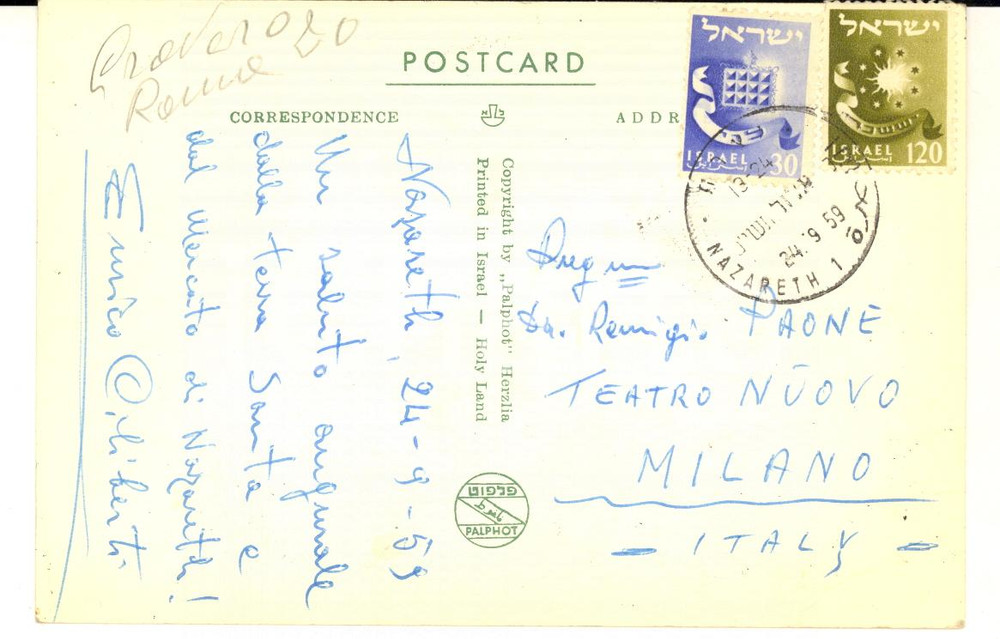 Roma
POSTCARD
CORRESPONDENCE
ADDR
ישראל
ISRAEL 30
ישראל
ISRAEL 120
13-24
24.9.59
NAZARETH 1
Nazareth, 24-9-59
Un saluto augurale
dalla terra Santa e
dal Mercato di Nazareth!
Enrico
Copyright by „Palphot” Herzlia
Printed in Israel — Holy Land
פלפוט
PALPHOT
Remigio PAONE
TEATRO NUOVO
MILANO
- ITALY -